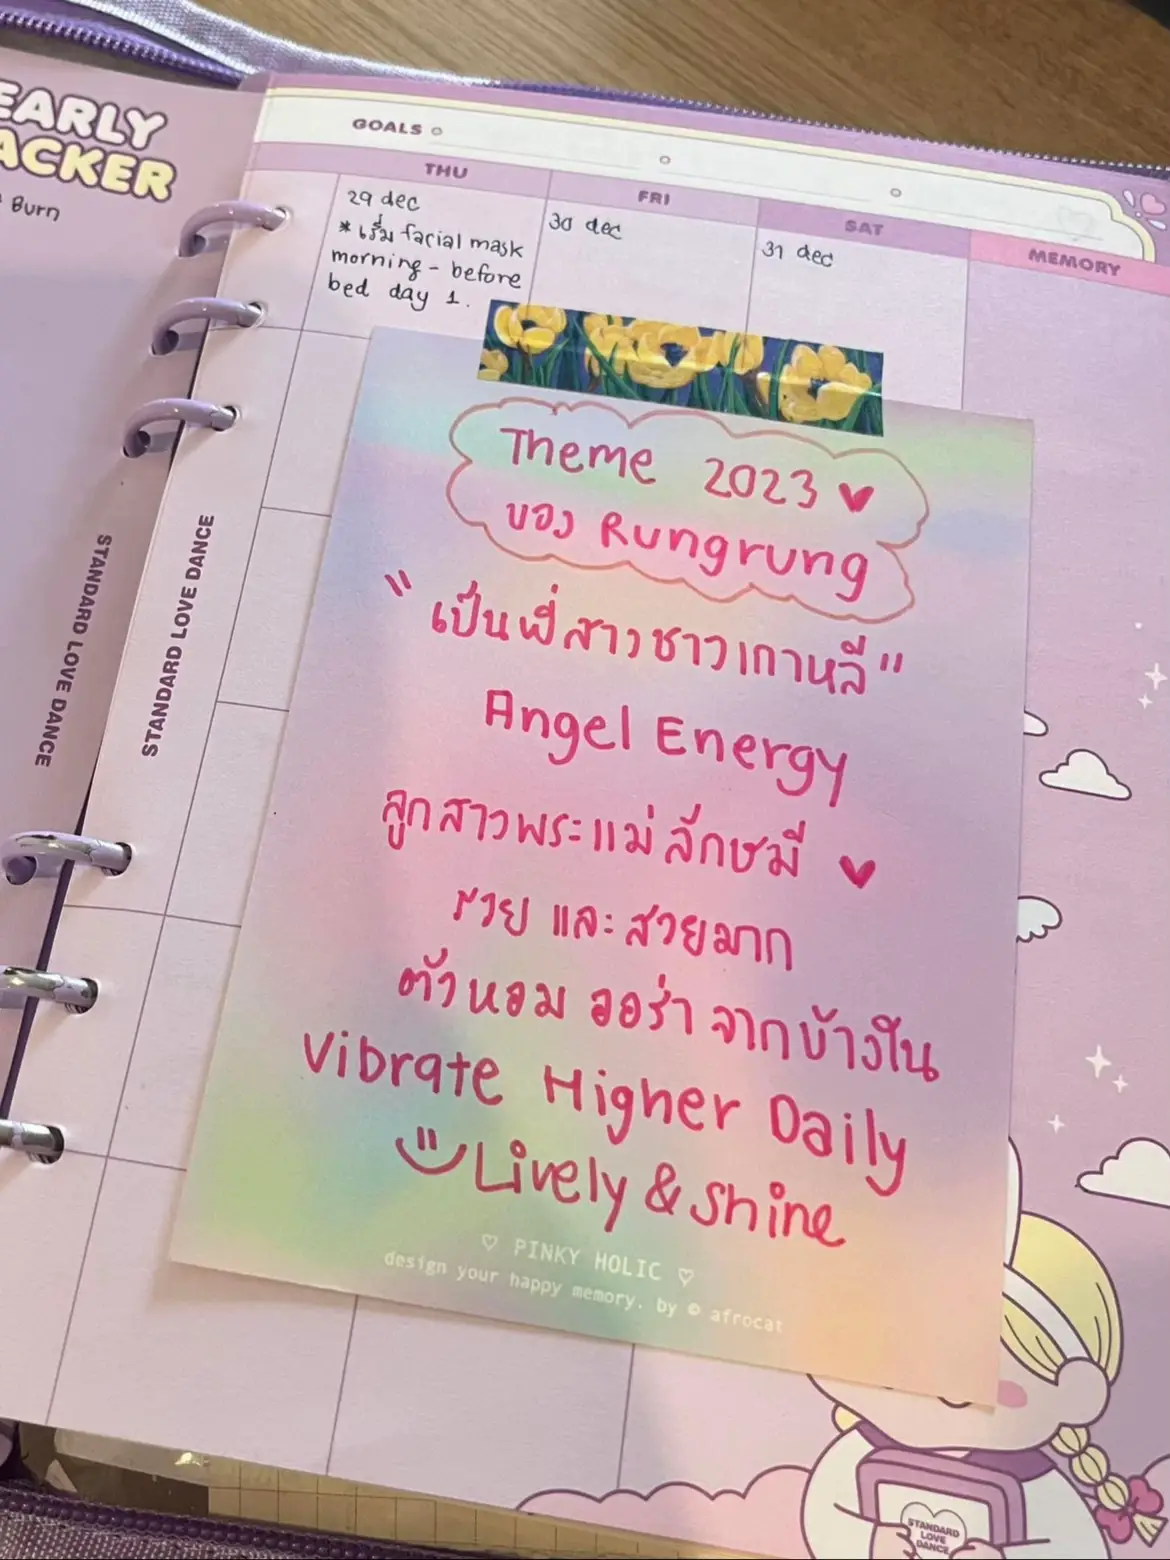 EARLY
ACKER
Burn
GOALS
THU
FRI
SAT
MEMORY
29 dec
*เริ่ม facial mask
morning - before
bed day 1.
30 dec
31 dec
Theme 2023 ♥
ของ Rungrung
"เป็นพี่สาวชาวเกาหลี"
Angel Energy
ลูกสาวพระแม่ลักษมี ♥
รวย และ สวยมาก
ตัวหอม ออร่า จากข้างใน
Vibrate Higher Daily
Lively & Shine
♡ PINKY HOLIC ♡
design your happy memory. by © afrocat
STANDARD LOVE DANCE
STANDARD LOVE DANCE
STANDARD
LOVE
DANCE